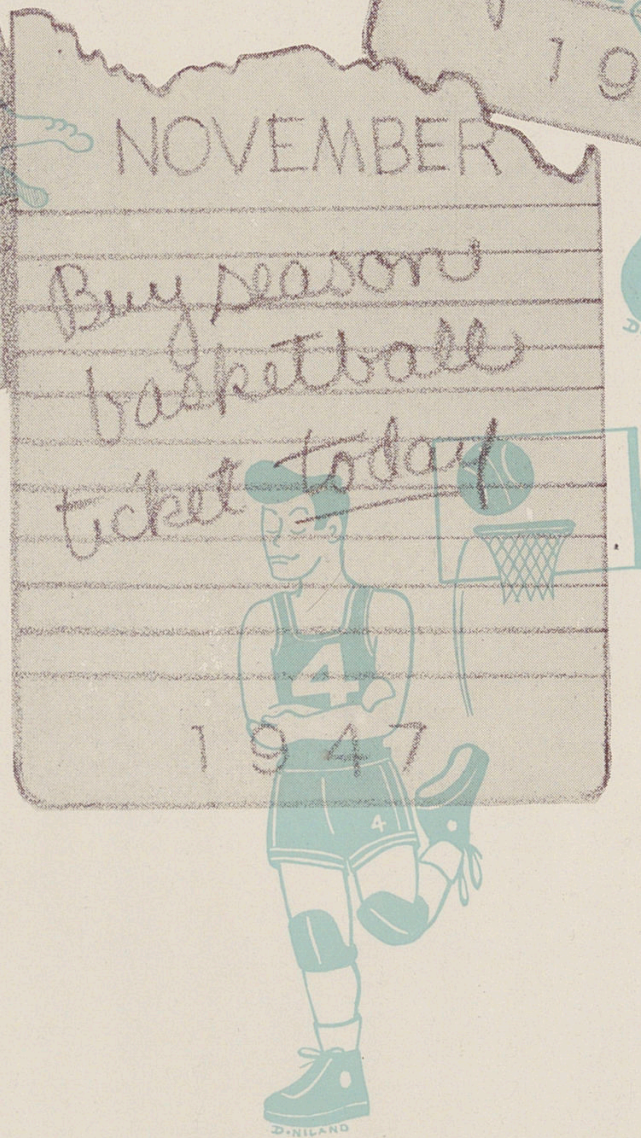 19
NOVEMBER
Buy season
basketball
ticket today
4
1947
4
D. NILAND